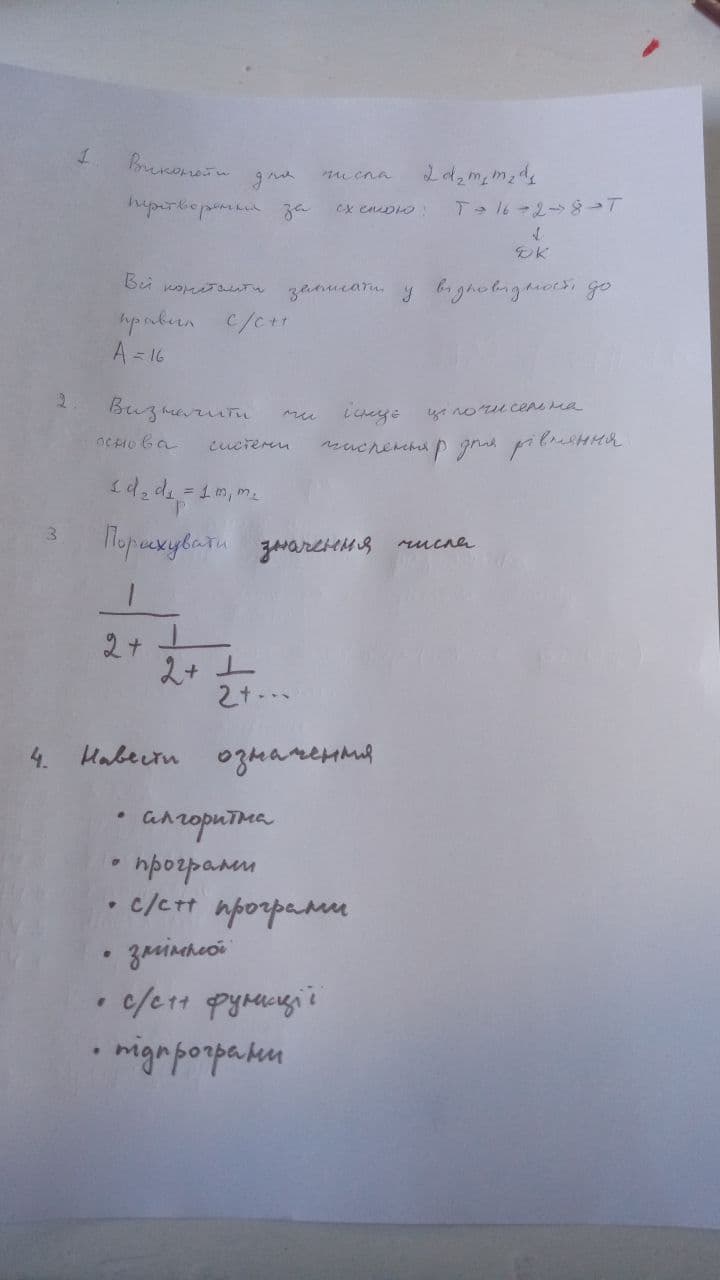 1. Виконати для числа 2d₂m₁m₂d₁
перетворення за схемою: T → 16 → 2 → 8 → T
↓
ДК
Всі константи записати у відповідності до
правил C/C++
A = 16
2. Визначити чи існує цілочисельна
основа системи числення p для рівняння
1d₂d₁ₚ = 1m₁m₂
3 Порахувати значення числа
1
2 + 1
2 + 1
2 + ...
4. Навести означення
• алгоритма
• програми
• C/C++ програми
• змінної
• C/C++ функції
• підпрограми